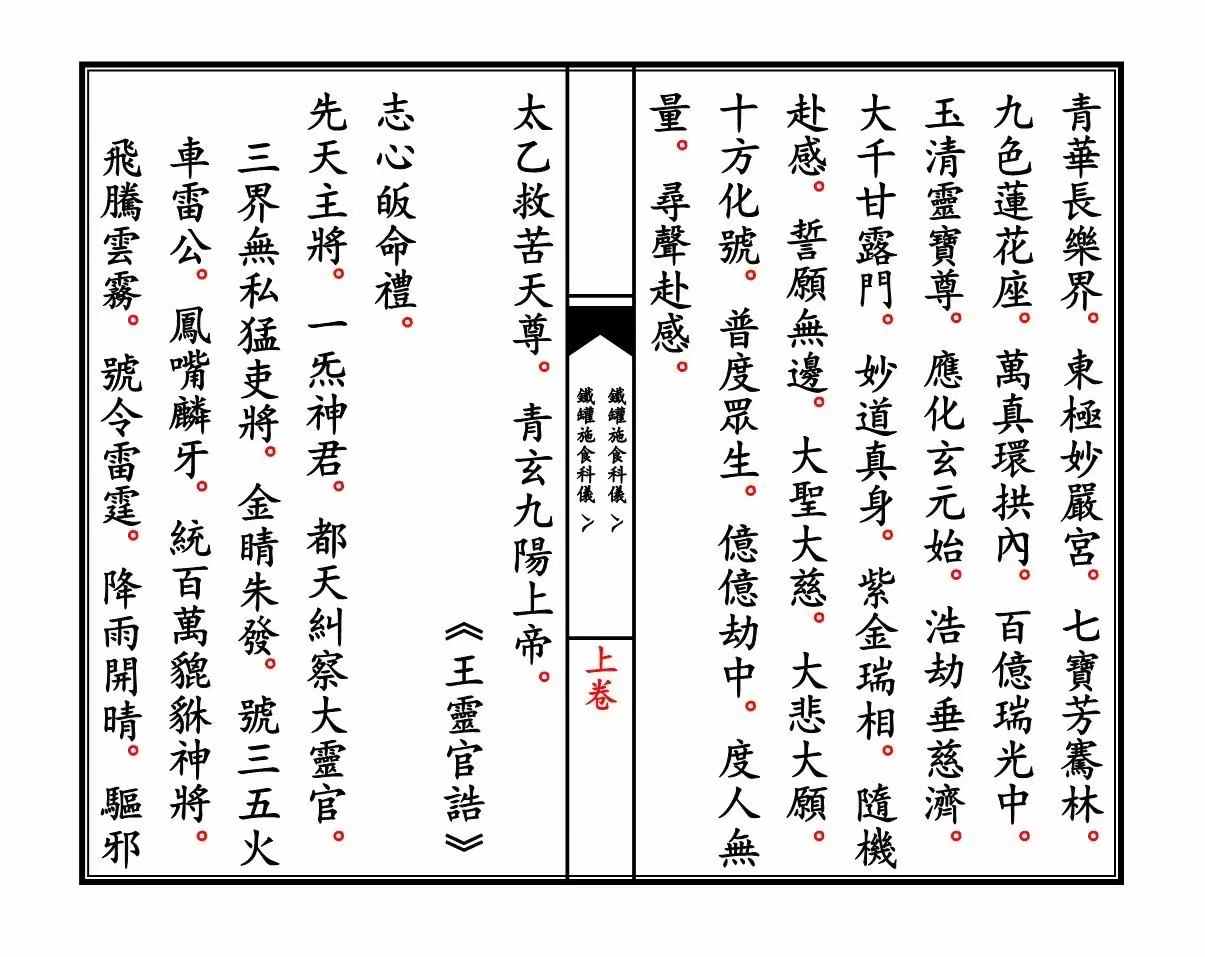 青華長樂界。東極妙嚴宮。七寶芳騫林。
九色蓮花座。萬真環拱內。百億瑞光中。
玉清靈寶尊。應化玄元始。浩劫垂慈濟。
大千甘露門。妙道真身。紫金瑞相。隨機
赴感。誓願無邊。大聖大慈。大悲大願。
十方化號。普度眾生。億億劫中。度人無
量。尋聲赴感。
鐵罐施食科儀
鐵罐施食科儀
上卷
太乙救苦天尊。青玄九陽上帝。
《王靈官誥》
志心皈命禮。
先天主將。一炁神君。都天糾察大靈官。
三界無私猛吏將。金睛朱發。號三五火
車雷公。鳳嘴麟牙。統百萬貔貅神將。
飛騰雲霧。號令雷霆。降雨開晴。驅邪